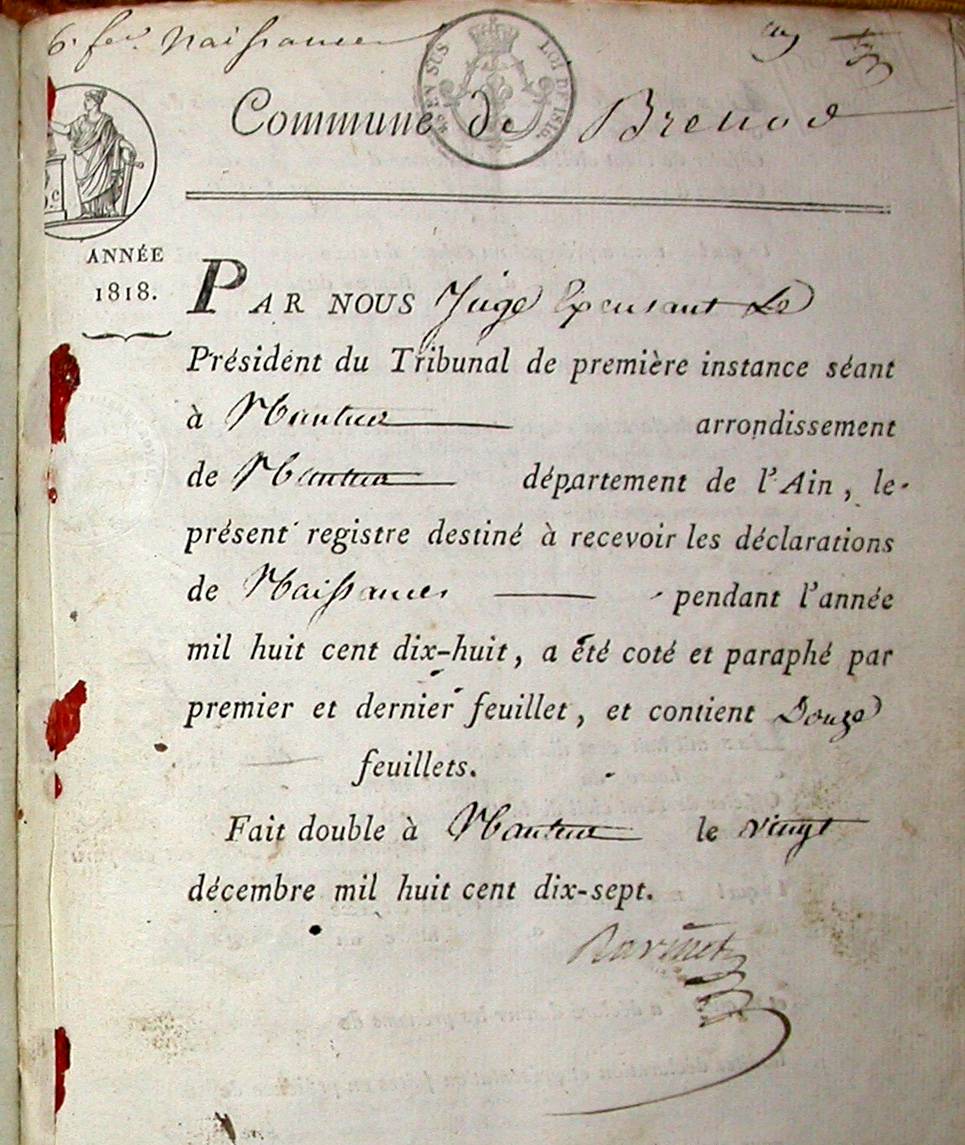 6. fev. Naissances
EN SUS LOI DE 1816.
Commune de Brenod
ANNÉE
1818.
PAR NOUS Juge Exerçant Le
Président du Tribunal de première instance séant
à Nantua arrondissement
de Nantua département de l'Ain, le
présent registre destiné à recevoir les déclarations
de Naissances pendant l'année
mil huit cent dix-huit, a été coté et paraphé par
premier et dernier feuillet, et contient Douze
feuillets.
Fait double à Nantua le vingt
décembre mil huit cent dix-sept.